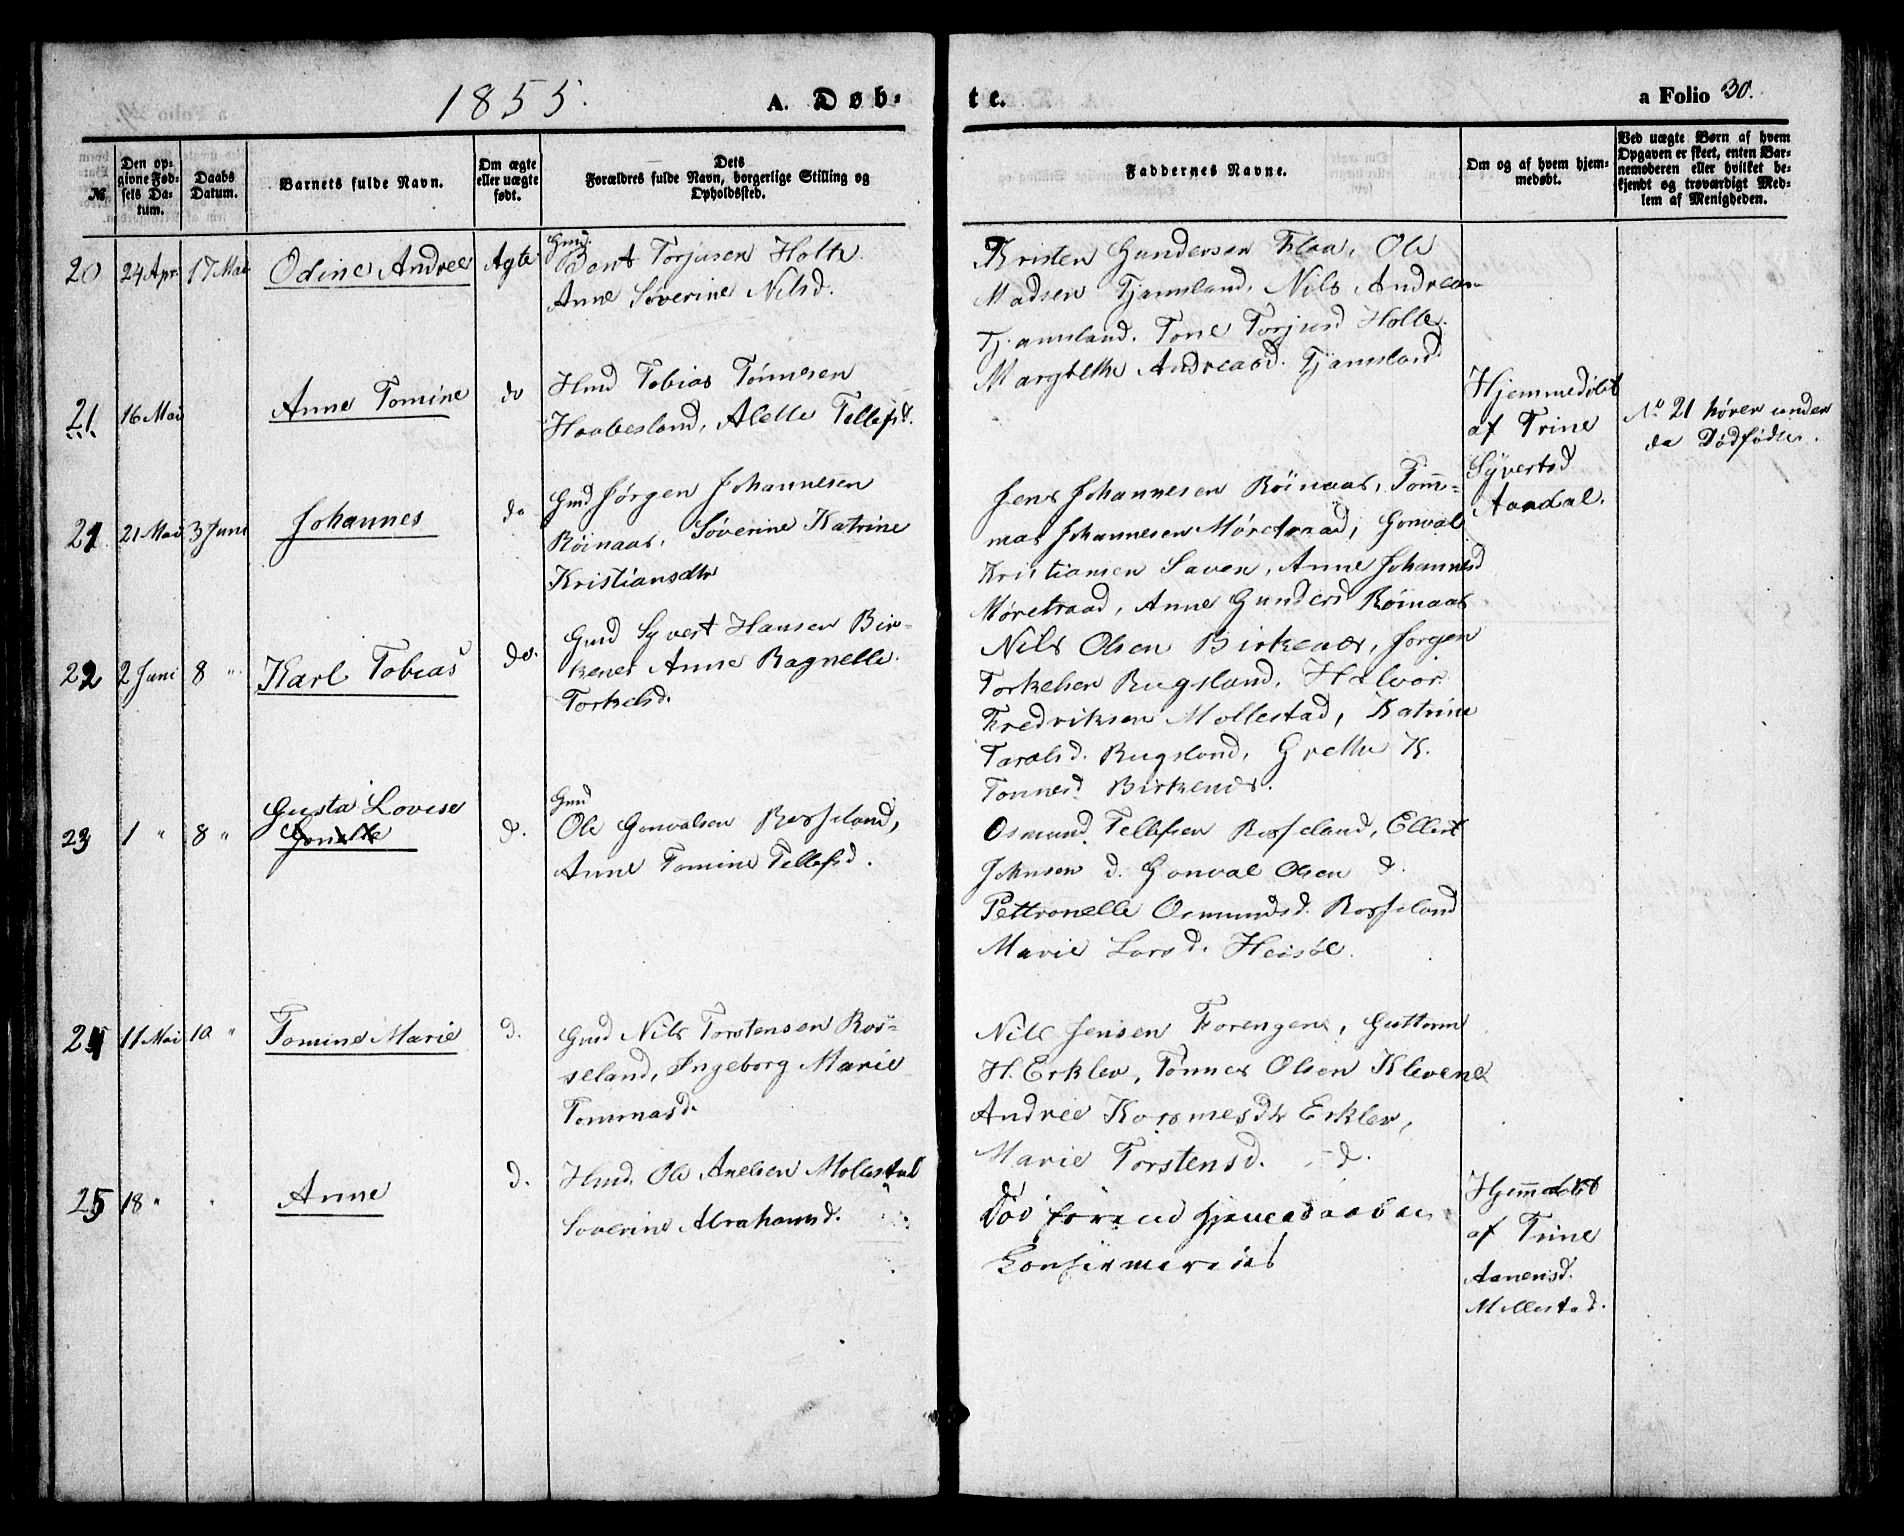 1855.
A. Døb-
te.
a Folio 30.
№
Den op-
givne Fød-
sels Da-
tum.
Daabs
Datum.
Barnets fulde Navn.
Om ægte
eller uægte
født.
Dets
Forældres fulde Navn, borgerlige Stilling og
Opholdssted.
Faddernes Navne.
Om og af hvem hjem-
medøbt.
Ved uægte Børn af hvem
Opgaven er skeet, enten Bar-
nemoderen eller hvilket be-
kjendt og troværdigt Med-
lem af Menigheden.
20 24 Apr. 17 Mai Odine Andree Ægte
Gmd.
Bent Torjusen Holte
Anne Søverine Nilsd.
Kristen Gundersen Flaa, Ole
Madsen Tjamsland, Nils Andreas
Tjamsland. Tone Torjusd Holte.
Margrethe Andreasd. Tjamsland
21 16 Mai Anne Tomine do
Hmd Tobias Tønnesen
Haabesland, Alette Tellefsd.
Hjemmedøbt
af Trine
Syvertsd
Aardal.
No 21 hører under
de Dødfødte.
21 21 Mai 3 Juni Johannes do
Gmd Jørgen Johannesen
Røinaas, Søverine Katrine
Kristiansdtr
Jens Johannesen Røinaas, Tom-
mas Johannesen Møretraad, Gonval
Kristiansen Saven, Anne Johannesd
Møretraad, Anne Gundersd Røinaas
22 2 Juni 8 " Karl Tobias do.
Gmd Syvert Hansen Bir-
kenes Anne Ragnelle
Torkelsd.
Nils Olsen Birkenes, Jørgen
Torkelsen Rugsland, Halvor
Fredriksen Mollestad, Katrine
Taralsd. Rugsland, Grethe K.
Tonnesd Birkenes.
23 1 " 8 " Gusta Lovise
d.
Gmd
Ole Gonvalsen Rosseland,
Anne Tomine Tellefsd.
Osmund Tellefsen Rosseland, Ellert
Johnsen d. Gonval Olsen d.
Pettronelle Osmundsd. Rosseland
Marie Larsd. Heisøl.
24 11 Mai 10 " Tomine Marie d.
Gmd Nils Torstensen Ros-
seland, Ingeborg Marie
Tommasd.
Nils Jensen Forengen, Guttorm
H. Erklev, Tønnes Olsen Klevene
Andree Erklev,
Marie Torstensd. d.
25 18 " " Anne d.
Hmd. Ole Anelsen Mollestad
Soverine Abrahamsd.
Død
Hjemmedøbt
af Trine
Aanensd.
Mollestad.